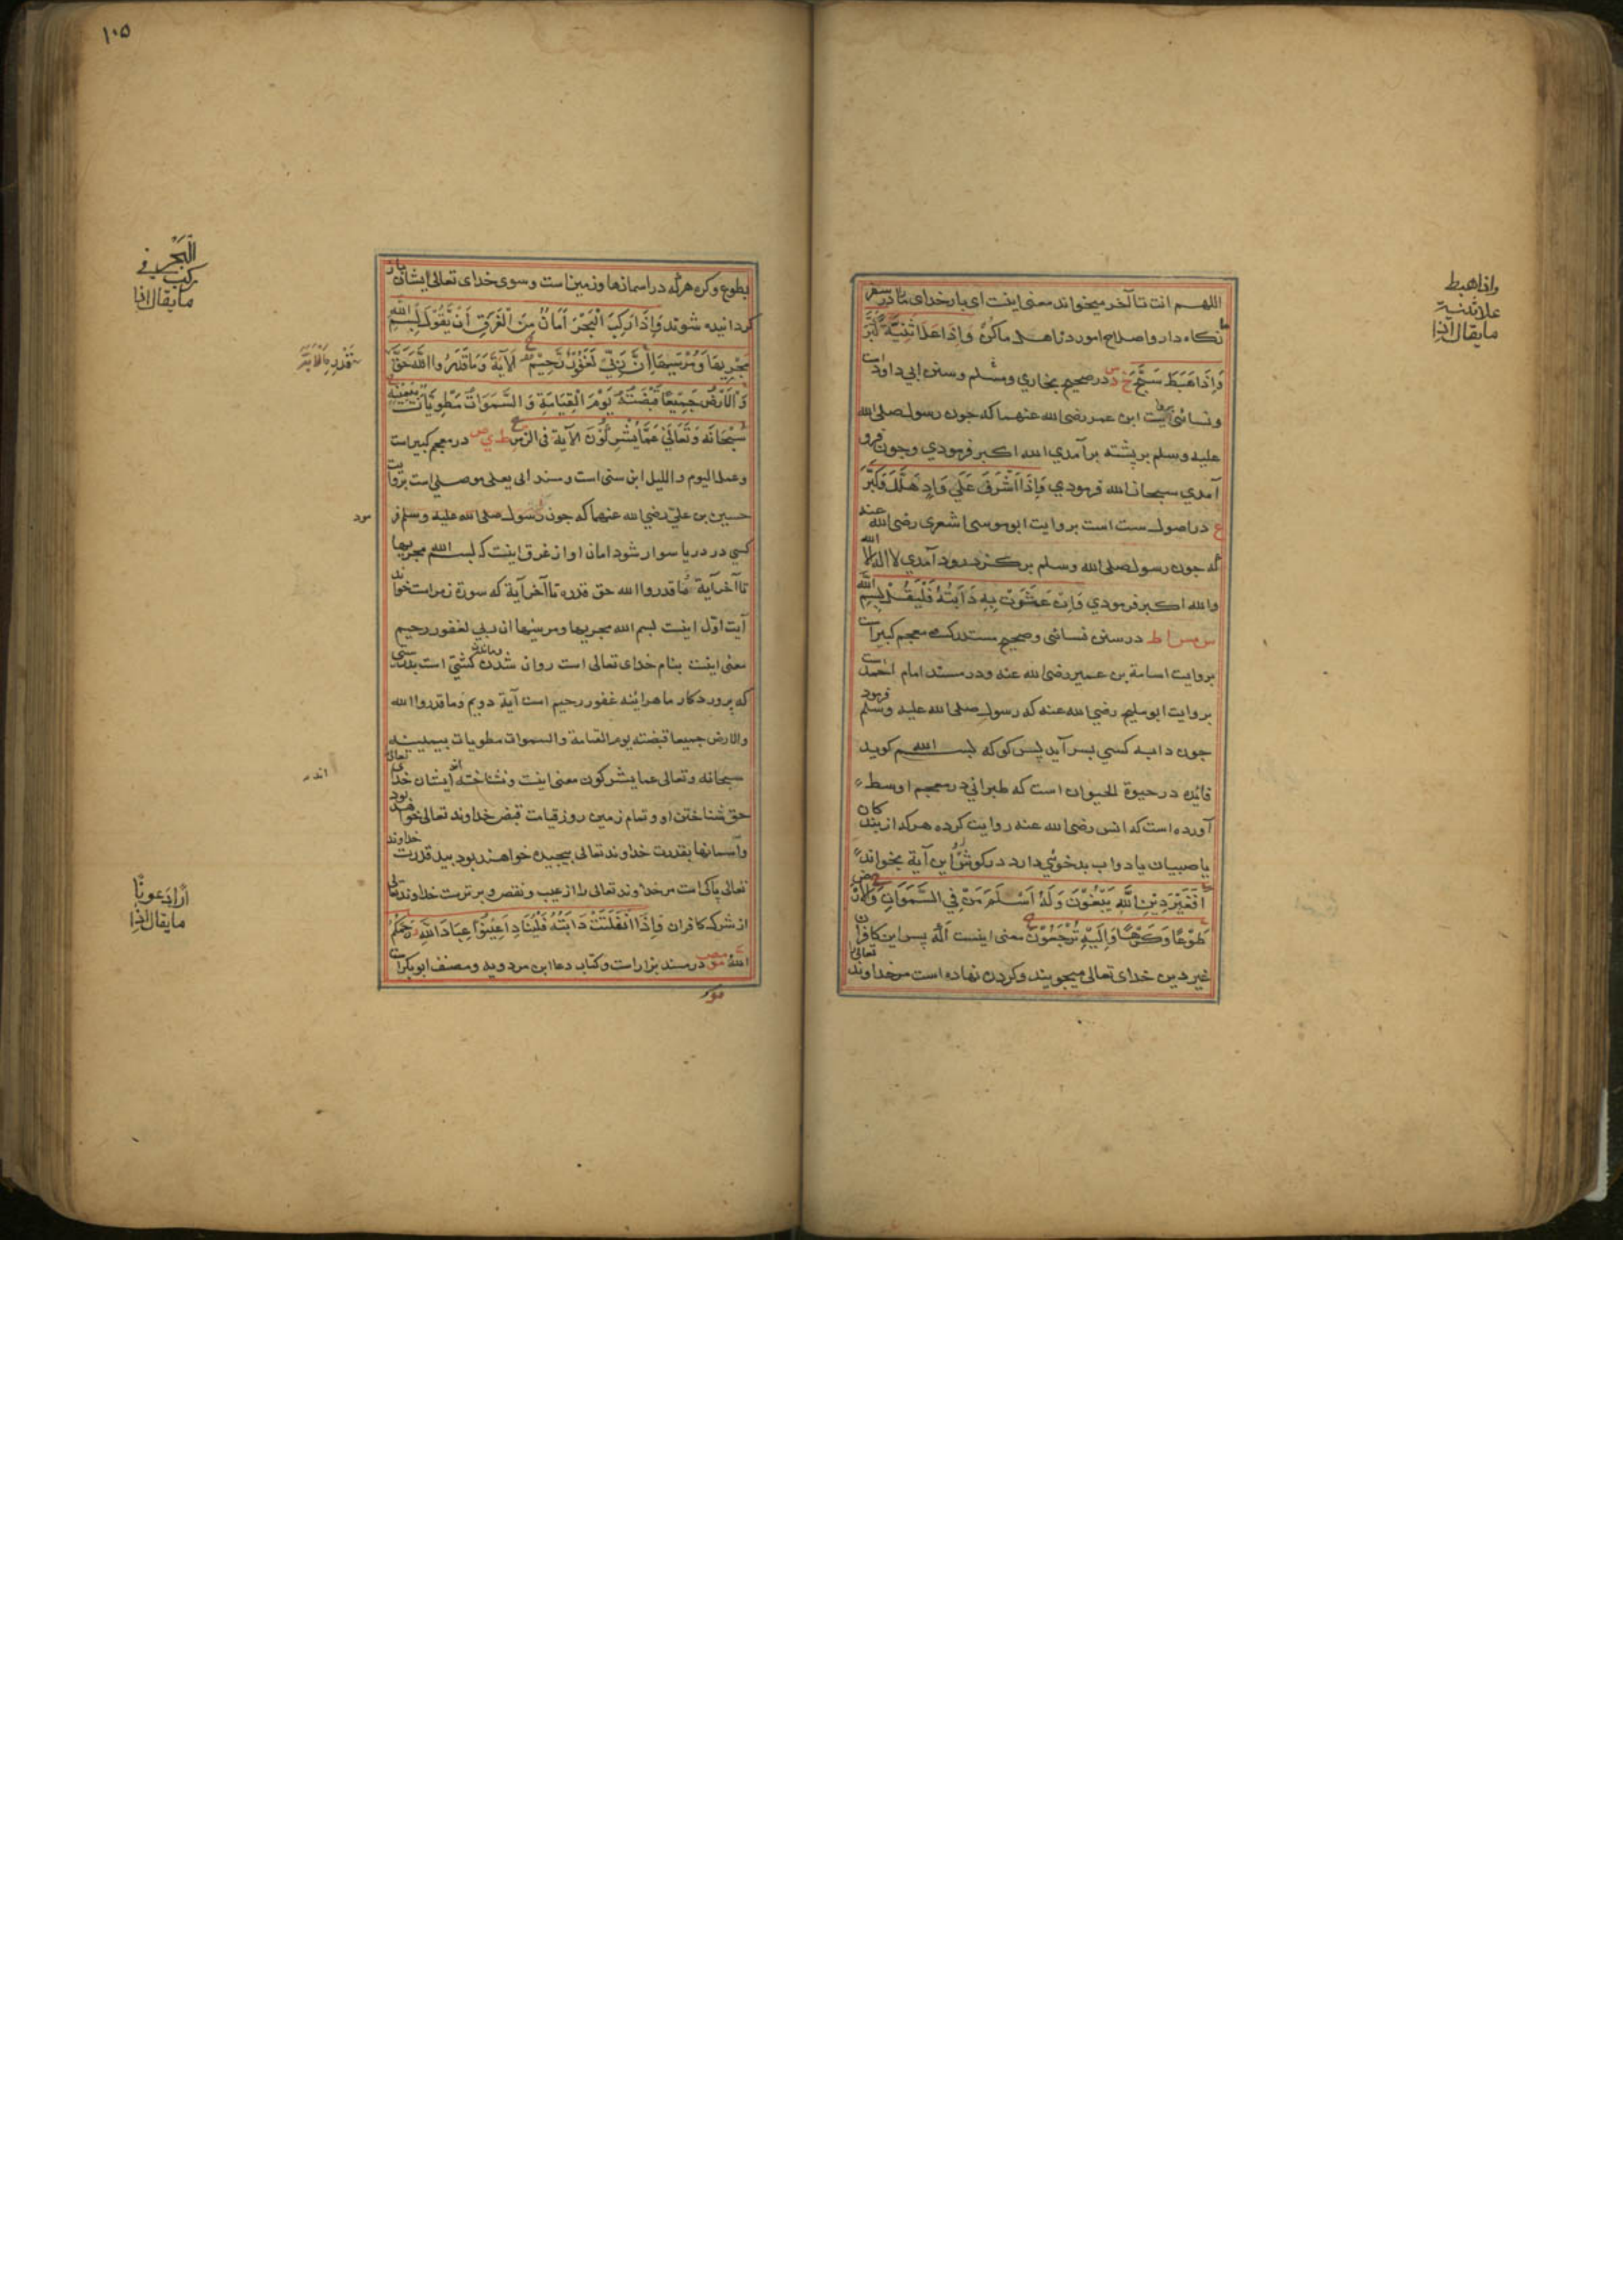 اللهم انت تا آخر میخواند معنی اینت ای بار خدای ما در سفر
نکاه دار و اصلاح امور در اهل ما کن وَاِذَا عَلَا ثَنِيَّةً كَبَّرَ
وَاِذَا هَبَطَ سَبَّحَ خ د س در صحیح بخاري و سنن ابي داود است
و نسائی بروایت ابن عمر رضی الله عنهما که جون رسول صلی الله
علیه وسلم بر پشته بر آمدي الله اکبر فرمودي وجون فرو
آمدي سبحان الله فرمودي وَاِذَا اَشْرَفَ عَلَي وَادٍ هَلَّلَ وَكَبَّرَ
ع در اصول ست است بروایت ابو موسی اشعری رضی الله عنه
که جون رسول صلی الله وسلم بر رود آمدي لا اله الا الله
والله اکبر فرمودي وَاِنْ عَثَرَتْ بِهِ دَابَّتُهُ فَلْيَقُلْ بِسْمِ اللّٰهِ
س مس ا ط در سنن نسائی و صحیح مستدرک و معجم کبیر است
بروایت اسامة بن عمیر رضی الله عنه ودر مسند امام احمد است
بروایت ابو ملیح رضي الله عنه که رسول صلی الله علیه وسلم فرمود
جون دابه کسي بسر آید پس کو که بسم الله کوید
فائده در حیوة الحیوان است که طبراني در معجم اوسط
آورده است که انس رضی الله عنه روایت کرده هر که از بندکان
یا صبیان یا دواب بدخوئي دارد در کوش او این آیة بخواند
اَفَغَيْرَ دِيْنِ اللّٰهِ يَبْغُوْنَ وَلَهُ اَسْلَمَ مَنْ فِي السَّمٰوَاتِ وَالْاَرْضِ
طَوْعًا وَكَرْهًا وَاِلَيْهِ تُرْجَعُوْنَ معنی اینست آیا پس این کافران
غیر دین خدای تعالی میجویند و کردن نهاده است مر خداوند تعالی
واذا هبط
علا ثنية
ما يقال اذا
١٠٥
بطوع و کره هر که در اسمانها و زمین است و سوی خدای تعالی ایشان باز
کردانیده شوند وَاِذَا رَكِبَ الْبَحْرَ اَمَانٌ مِنَ الْغَرَقِ اَنْ يَقُوْلَ بِسْمِ اللّٰهِ
مَجْرٰيهَا وَمُرْسٰيهَا اِنَّ رَبِّي لَغَفُوْرٌ رَحِيْمٌ اَلْآيَةَ وَمَا قَدَرُوا اللّٰهَ حَقَّ
وَالْاَرْضُ جَمِيْعًا قَبْضَتُهُ يَوْمَ الْقِيَامَةِ وَالسَّمٰوَاتُ مَطْوِيَّاتٌ بِيَمِيْنِهِ
سُبْحَانَهُ وَتَعَالٰي عَمَّا يُشْرِكُوْنَ الآية في الزمر ط ي ص در معجم کبیر است
و عمل الیوم واللیل ابن سنی است و مسند ابی یعلی موصلی است بروایت
حسین بن علي رضي الله عنهما که جون رسول صلی الله علیه وسلم فر
کسي در دریا سوار شود امان او از غرق اینت که بسم الله مجریها
تا آخر آیة وما قدروا الله حق قدره تا آخر آیة که سورة زمر است خواند
آیت اول اینت بسم الله مجریها و مرسیها ان ربي لغفور رحیم
معنی اینت بنام خدای تعالی است روان شدن کشتی است
که پرورد کار ما هر اینه غفور رحیم است آیة دویم وما قدروا الله
والارض جمیعا قبضته یوم القیامة والسموات مطویات بیمینه
سبحانه و تعالی عما یشرکون معنی اینت و نشناخته اند ایشان خدای تعالی
حق شناختن او و تمام زمین روز قیامت قبض خداوند تعالی خواهد بود
و اسمانها بقدرت خداوند تعالی پیچیده خواهند بود بید قدرت خداوند
تعالی پاکی است مر خداوند تعالی را از عیب و نقص و برتریت خداوند تعالی
از شرک کافران وَاِذَا انْفَلَتَتْ دَابَّتُهُ فَلْيُنَادِ اَعِيْنُوْا عِبَادَ اللّٰهِ رَحِمَكُمُ
اللّٰهُ مو مص در مسند بزار است و کتاب دعا ابن مردویه و مصنف ابو بکر است
الْبَحْرَ في
ركب
ما يقال اذا
قَدْرِهِ اَلْآيَةَ
مود
اند
اراد عونا
ما يقال اذا